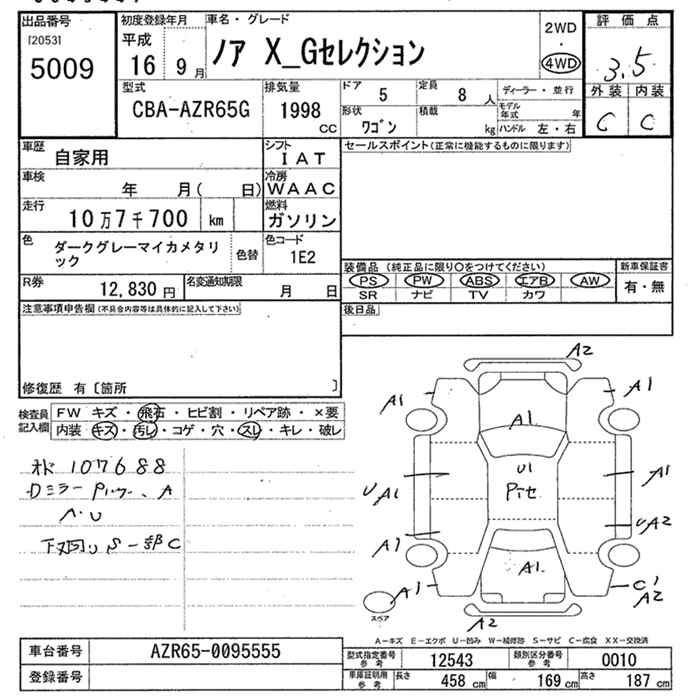 出品番号
[2053]
5009
初度登録年月
平成
16
9月
車名・グレード
ノア X_Gセレクション
2WD
・
4WD
評価点
3.5
型式
CBA-AZR65G
排気量
1998
CC
ドア
5
定員
8
人
ディーラー・並行
モデル年式
年
形状
ワゴン
積載
kg
ハンドル
左・右
外装 内装
C C
車歴
自家用
シフト
IAT
セールスポイント(正常に機能するものに限ります)
車検
年 月( 日)
冷房
WAAC
走行
10万7千700 km
燃料
ガソリン
色
ダークグレーマイカメタリ
ック
色替
色コード
1E2
装備品 (純正品に限り○をつけてください)
新車保証書
PS PW ABS エアB AW
SR ナビ TV カワ
有・無
R券
12,830 円
名変通知期限
月 日
注意事項申告欄(不具合内容等は具体的に記入して下さい)
後日品
修復歴 有〔箇所 〕
検査員
記入欄
FW キズ・飛石・ヒビ割・リペア跡・×要
内装 キズ・汚レ・コゲ・穴・スレ・キレ・破レ
107688
A2
A1
A1
A1
U1
UA1
A1
UA2
A1
A1
A1
C1
A2
A2
スペア
A-キズ E-エクボ U-凹み W-補修跡 S-サビ C-腐食 XX-交換済
車台番号
AZR65-0095555
登録番号
型式指定番号
参考
12543
類別区分番号
参考
0010
車庫証明用
参考
長さ
458 cm
幅
169 cm
高さ
187 cm